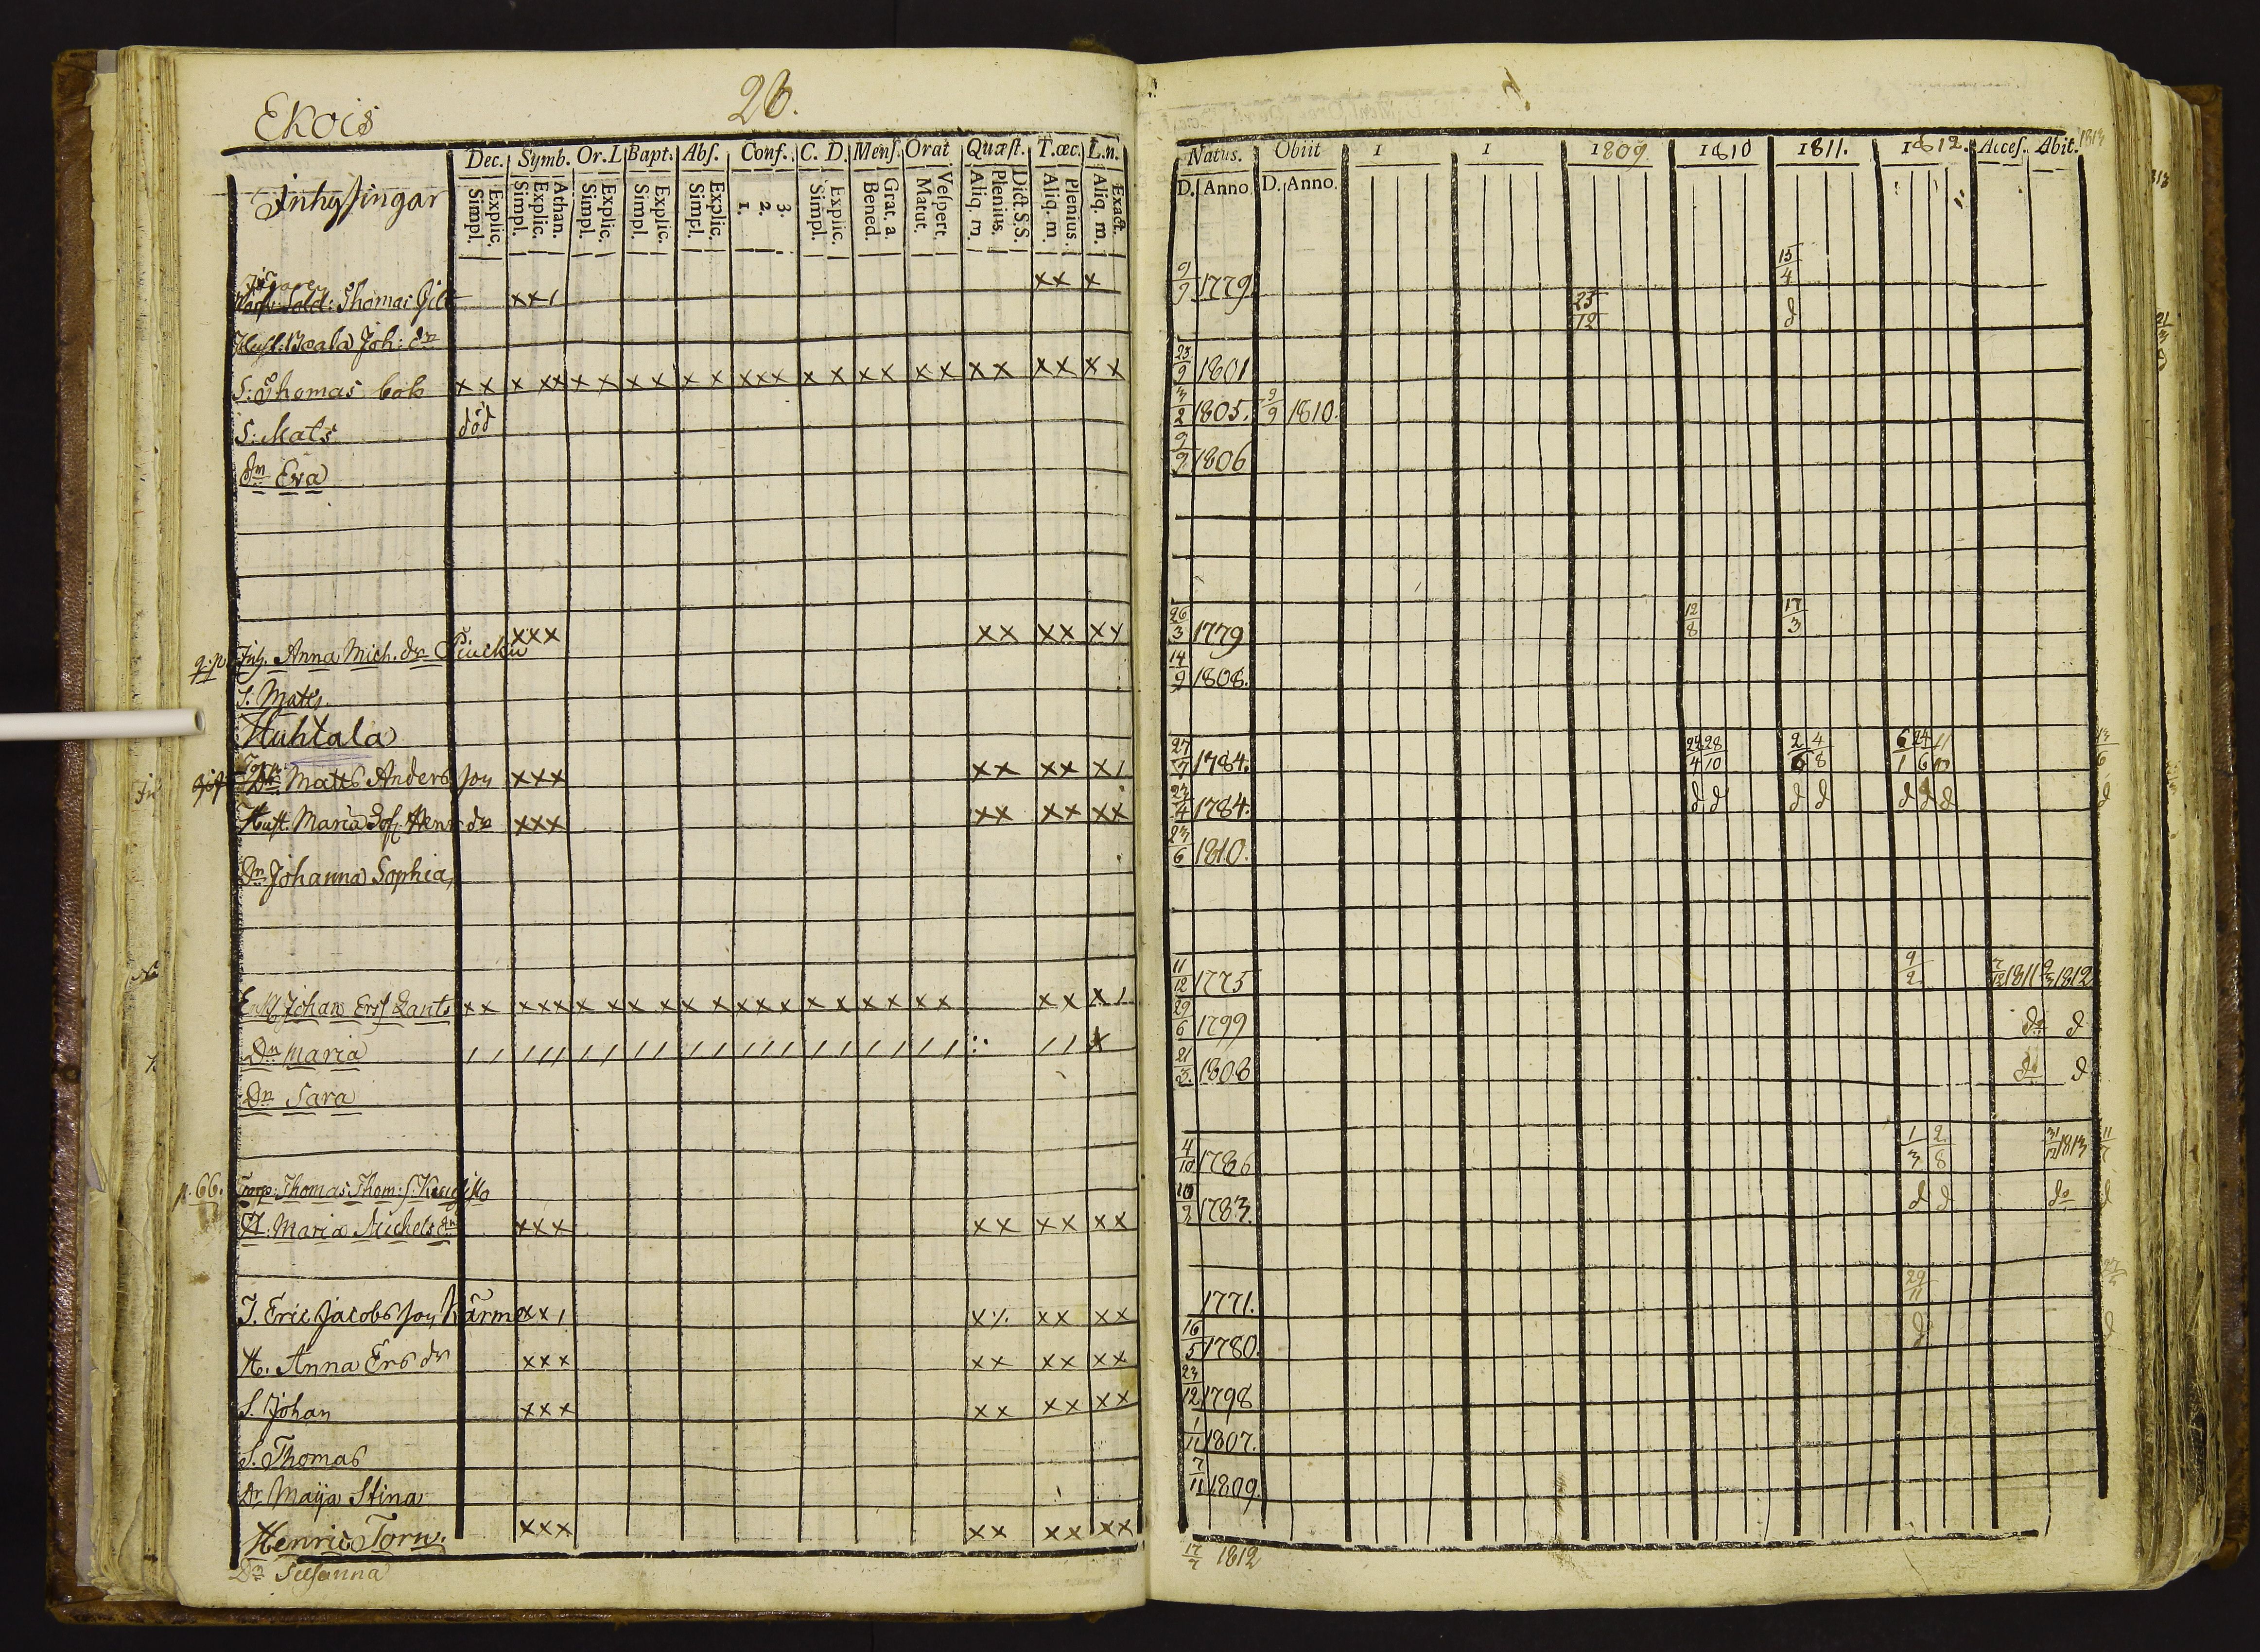 Ekois 26.
Inhysingar
Dec. Symb. Or. L Bapt. Abs. Conf. C. D. Mens. Orat Quæst. T. œc. L. n.
Simpl. Explic. Simpl. Explic. Athan. Simpl. Explic. Simpl. Explic. Simpl. Explic. 1. 2. 3. Simpl. Explic. Bened. Grat. a. Matut. Vespert. Aliq. m. Plenius. Dict. S.S. Aliq. m. Plenius. Aliq. m. Exact.
Natus. Obiit 1 1 1809 1810 1811. 1812. Acces. Abit. 1813
D. Anno. D. Anno.
Sold: Thomas xx1 xx x 9/9 1779. 15/4
Hust: Beata Joh: dr 25/12 d
S: Thomas bok xx xxx xx xx xx xxx xx xx xx xx xx xx 23/9 1801
S: Mats död 3/2 1805. 9/9 1810.
dr Eva 9/9 1806
Inh. Anna Mich. dr xxx xx xx xx 26/3 1779 12/8 17/3
S. Matts. 14/9 1808.
Huhtala
Matts Anders son xxx xx xx x1 27/7 1784. 24/4 28/10 2/6 4/8 6/1 24/6 11/10 13/6
Hust. Maria Henr dr xxx xx xx xx 23/4 1784. d d d d d d d d
Dr Johanna Sophia 23/6 1810.
Johan Ers xx xxx xx xx xx xxx xx xx xx xx x1 11/12 1775 9/2 7/12 1811 2/3 1812
Dr Maria 11 111 11 11 11 111 11 11 11 11 x 29/6 1799 do d
Dr Sara 21/3 1808 do d
p. 66. Corp: Thomas Thom: S. 4/10 1786 1/3 2/8 31/12 1813 11/7
H: Maria Michels dr xxx xx xx xx 10/2 1783. d d do d
I. Eric Jacobs son Kärmä xx1 xx xx 1771. 29/11
H. Anna Ers dr xxx xx xx xx 16/5 1780. d d
S. Johan xxx xx xx xx 23/12 1798
S. Thomas 1/11 1807.
Dr Maija Stina 7/11 1809
Henric Torn. xxx xx xx xx
Dr Susanna 17/7 1812